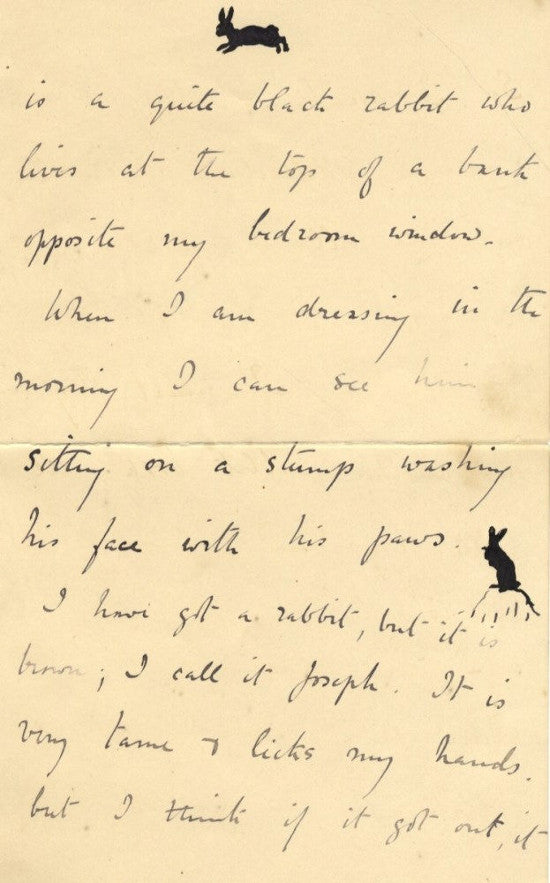 is a quite black rabbit who
lives at the top of a bank
opposite my bedroom window.
When I am dressing in the
morning I can see him
sitting on a stump washing
his face with his paws.
I have got a rabbit, but it is
brown; I call it Joseph. It is
very tame & licks my hands.
but I think if it got out, it